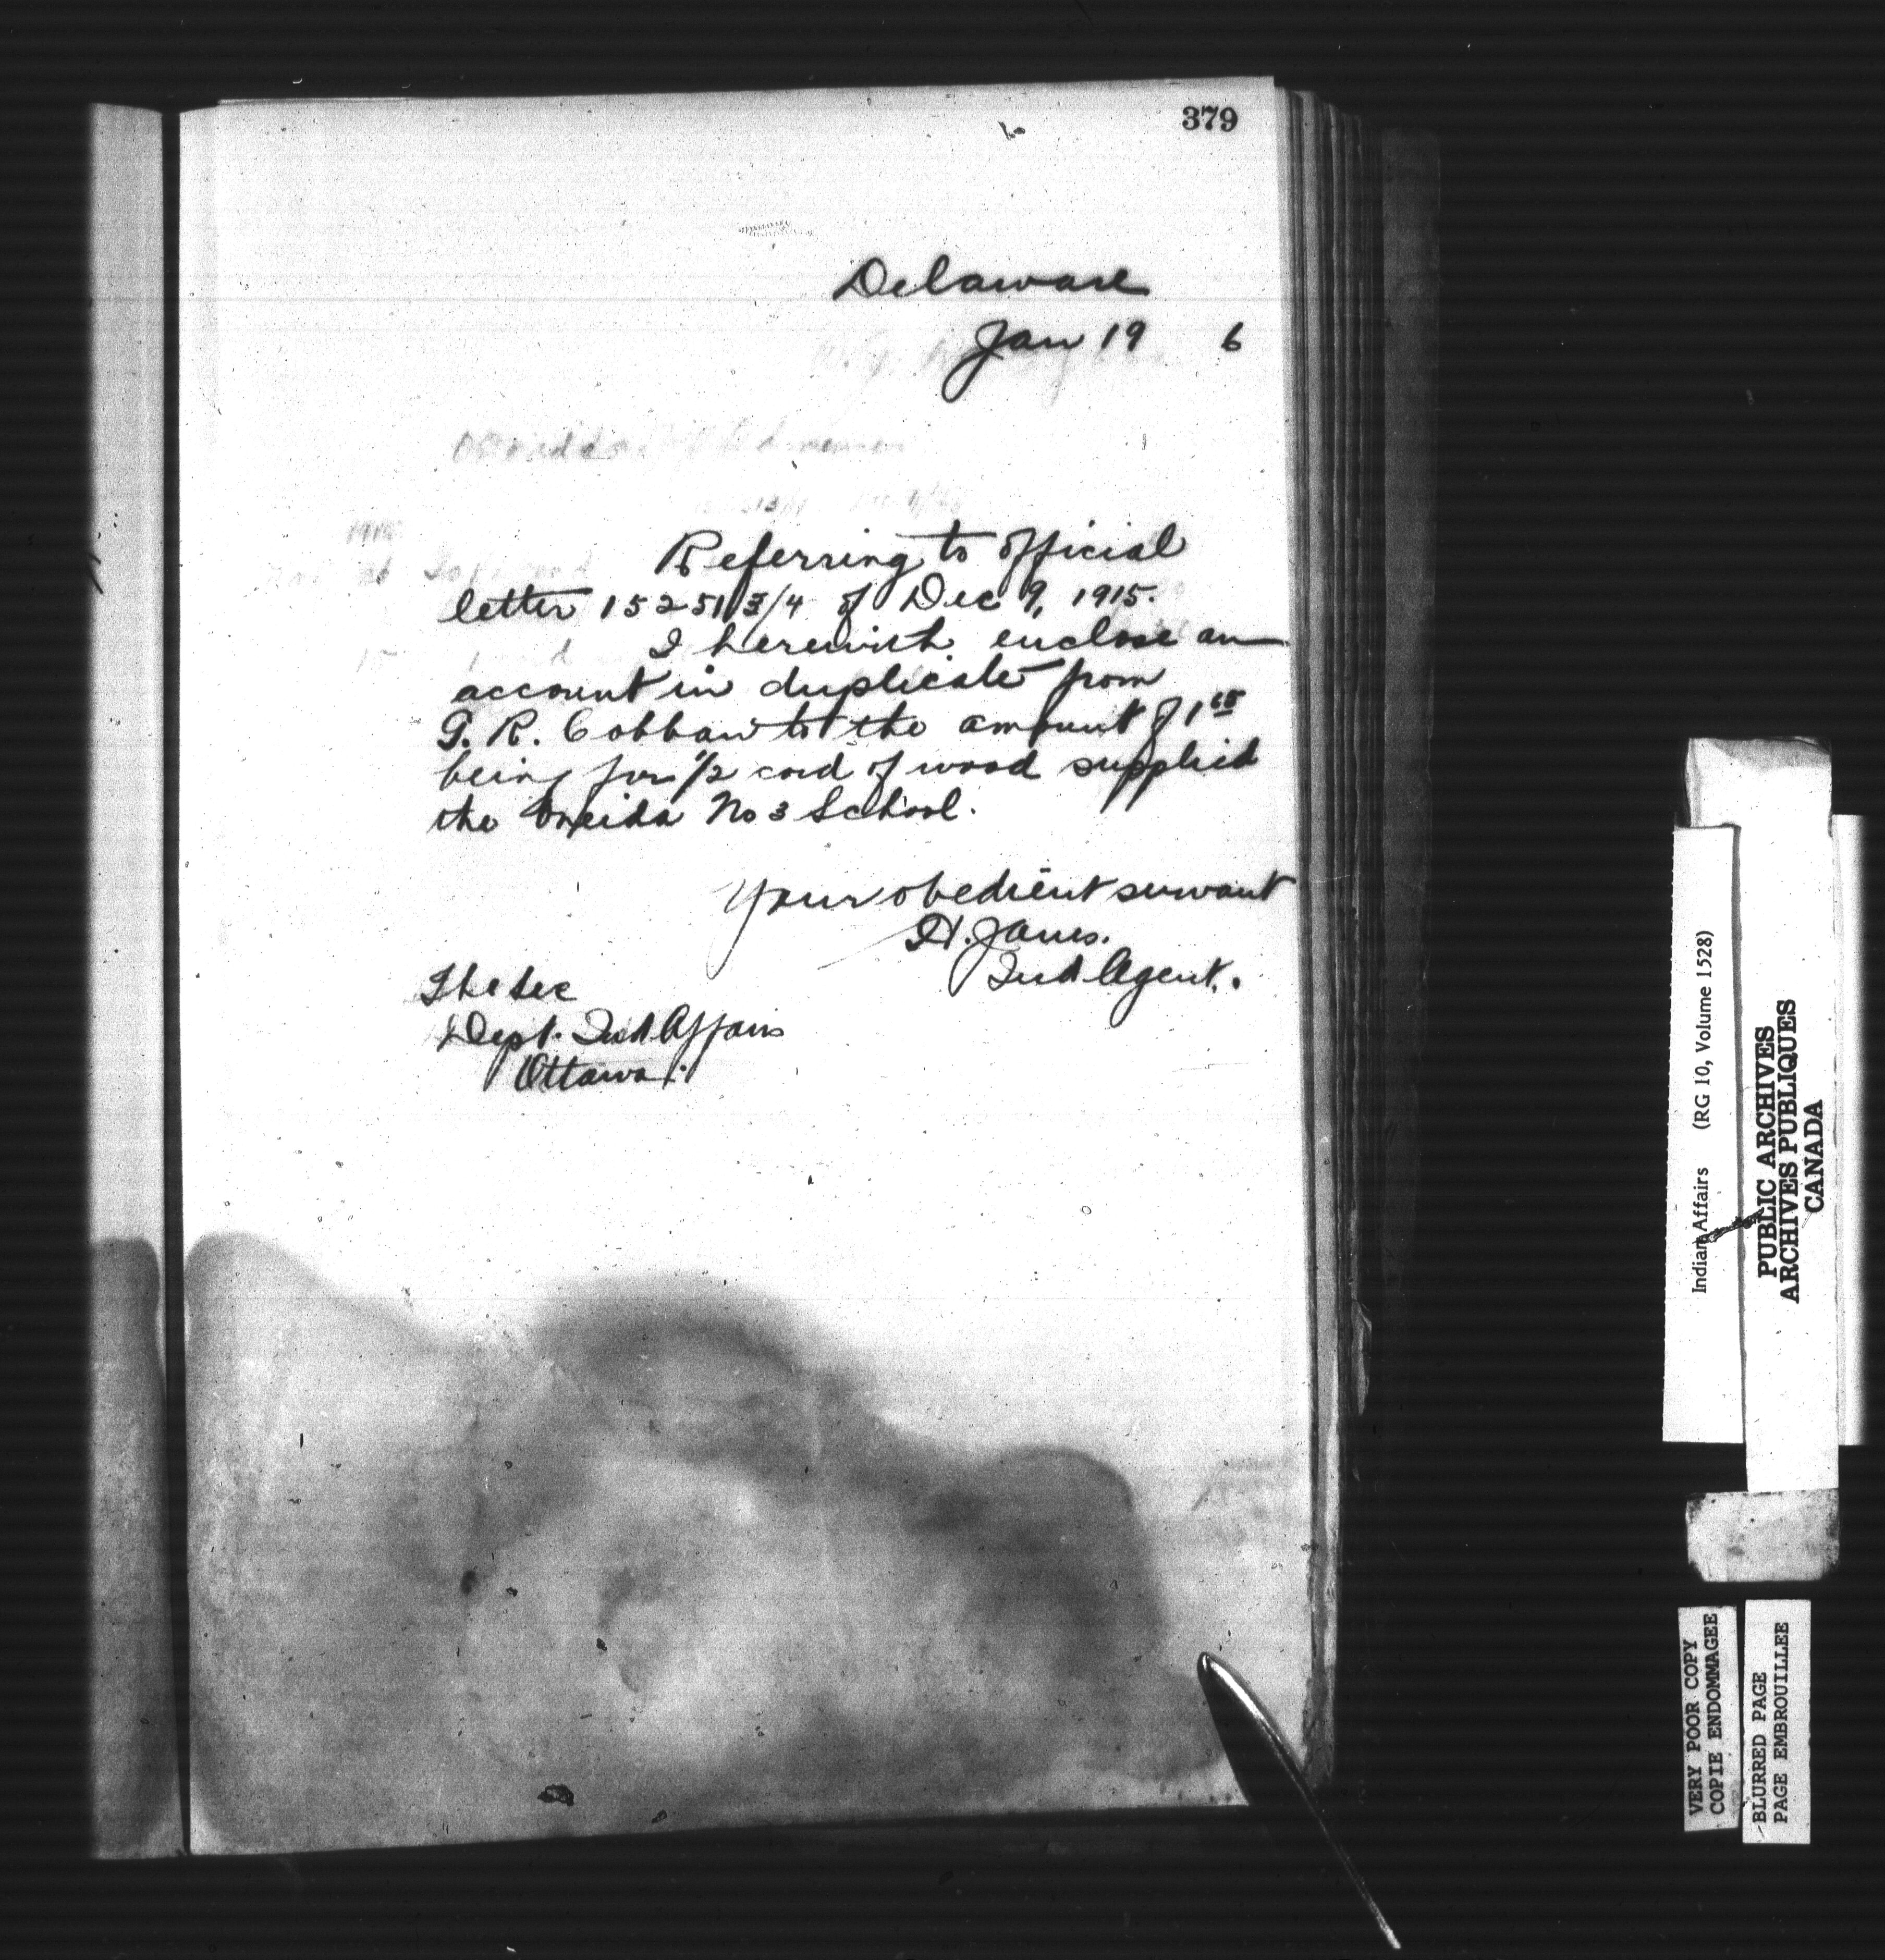 379
Delaware
Jan 19 6
Referring to official
letter 152513/4 of Dec 9, 1915.
I herewith enclose an
account in duplicate from
G. R. to the amount of 1
being for 1/2 cord of wood supplied
the Oneida No 3 School.
Your obedient servant
Ind Agent.
The Sec
Dept. Ind Affairs
Ottawa.
Indian Affairs (RG 10, Volume 1528)
PUBLIC ARCHIVES
ARCHIVES PUBLIQUES
CANADA
VERY POOR COPY
COPIE ENDOMMAGEE
BLURRED PAGE
PAGE EMBROUILLEE